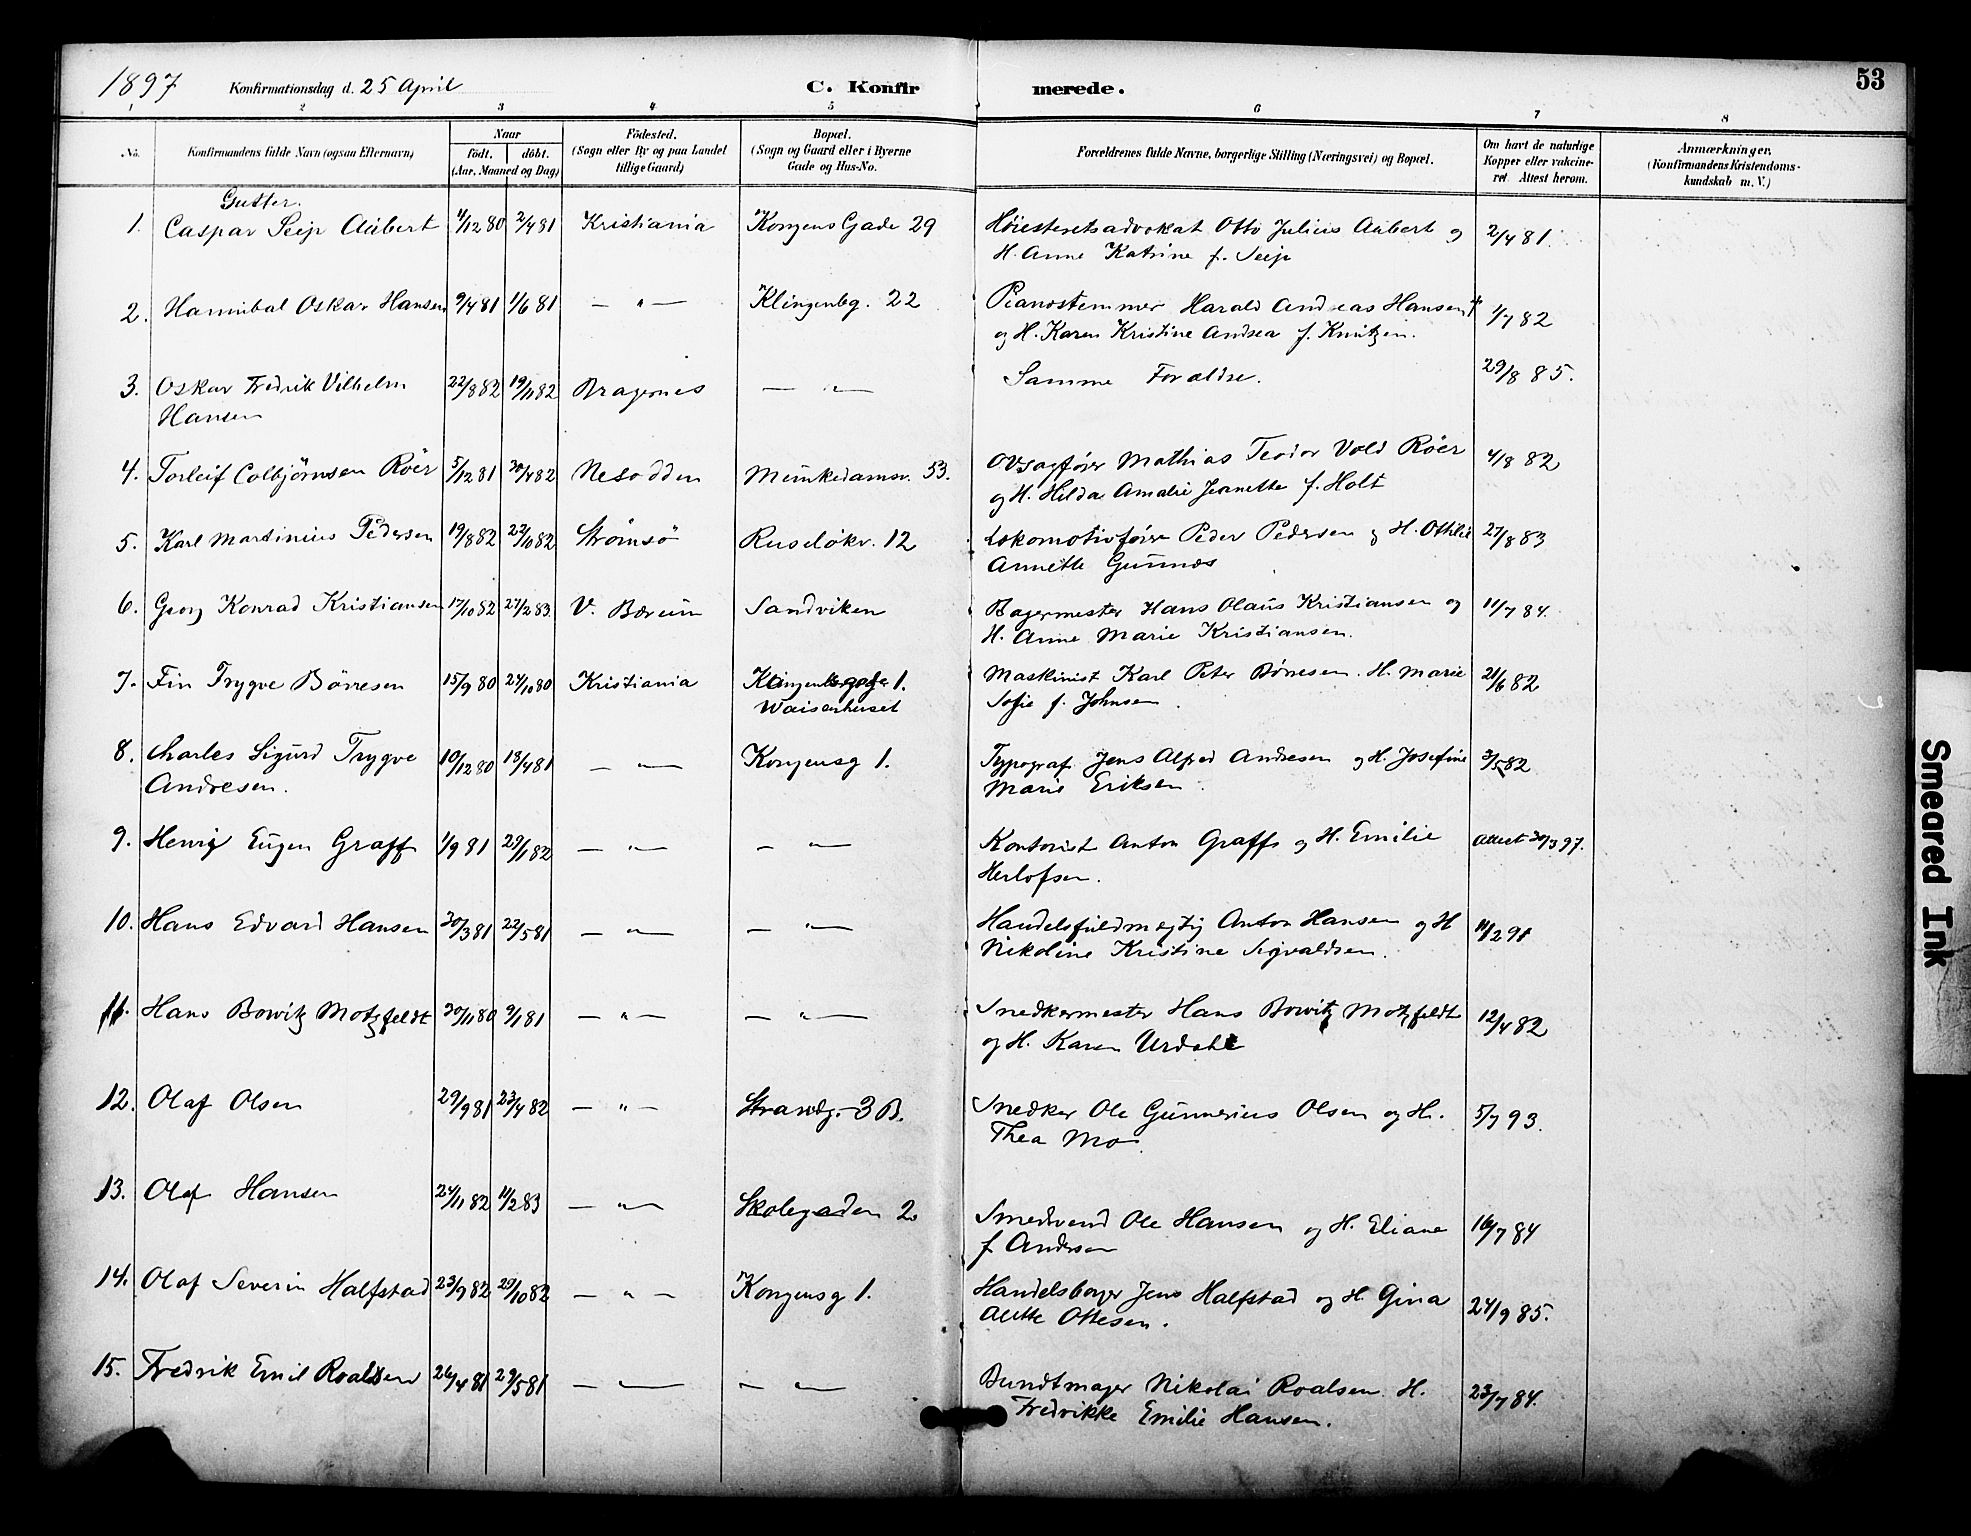 1897 Konfirmationsdag d. 25 April C. Konfirmerede. 53
1 2 3 4 5 6 7 8
No. Konfirmandens fulde Navn (ogsaa Efternavn) Naar födt. döbt. (Aar, Maaned og Dag) Födested. (Sogn eller By og paa Landet tillige Gaard) Bopæl. (Sogn og Gaard eller i Byerne Gade og Hus-No. Forældrenes fulde Navne, borgerlige Stilling (Næringsvei) og Bopæl. Om havt de naturlige Kopper eller vakcineret. Attest herom. Anmærkninger, (Konfirmandens Kristendomskundskab m. V.)
Gutter.
1. Caspar Seip Aubert 1/12 80 2/4 81 Kristiania Kongens Gade 29 Höiesteretsadvokat Otto Julius Aubert og 2/4 81.
H. Anne Katrine f. Seip
2. Hannibal Oskar Hansen 9/4 81 1/6 81 — " — Klingenbg. 22 Pianostemmer Harald Andreas Hansen 1/7 82
og H. Karen Kristine Andrea f. Knutzen.
3. Oskar Fredrik Vilhelm 22/8 82 19/11 82 Bragernes — " — Samme Forældre. 29/8 85.
Hansen
4. Torleif Colbjørnsen Röer 5/12 81 30/4 82 Nesodden Munkedamsv. 53. Ovsagfører Mathias Teodor Vold Röer 4/8 82
og H. Hilda Amalie Jeanette f. Holt
5. Karl Martinius Pedersen 19/8 82 22/10 82 Strömsö Ruselökv. 12 Lokomotivförer Peder Pedersen og H. Othilie 27/8 83
Annette Gunnæs
6. Georg Konrad Kristiansen 17/10 82 27/2 83. V. Bærum Sandviken Bagermester Hans Olaus Kristiansen og 11/7 84.
H. Anne Marie Kristiansen.
7. Fin Trygve Börresen 15/9 80 24/10 80 Kristiania Klingenberggade 1. Maskinist Karl Peter Börresen. H. Marie 21/6 82
Waisenhuset Sofie f. Johnsen.
8. Charles Sigurd Trygve 10/12 80 13/4 81 — " — Kongensg 1. Typograf Jens Alfred Andresen og H. Josefine 3/5 82
Andresen. Marie Eriksen.
9. Henrig Eugen Graff 1/9 81 29/1 82 — " — — " — Kontorist Anton Graffs og H. Emilie Attest 30/3 97.
Herlofsen.
10. Hans Edvard Hansen 30/3 81 22/5 81 — " — — " — Handelsfuldmegtig Anton Hansen og H 11/2 91
Nikoline Kristine Sigvaldsen.
11. Hans Bowitz Motzfeldt 30/11 80 9/1 81 — " — — " — Snedkermester Hans Bowitz Motzfeldt 12/4 82
og H. Karen Urdahl
12. Olaf Olsen 29/9 81 23/4 82 — " — Strandg. 3 B. Snedker Ole Gunnerius Olsen og H. 5/7 93.
Thea Mo.
13. Olaf Hansen 24/11 82 11/2 83 — " — Skolegaden 2. Smedsvend Ole Hansen og H. Eliane 16/7 84
f Andersen
14. Olaf Severin Halfstad 23/9 82 29/10 82 — " — Kongensg 1. Handelsborger Jens Halfstad og H. Gina 24/9 85.
Alette Ottesen.
15. Fredrik Emil Roaldsen 26/4 81 29/5 81 — " — — " — Bundtmager Nikolai Roalsen. H. 23/7 84.
Fredrikke Emilie Hansen.
Smeared Ink